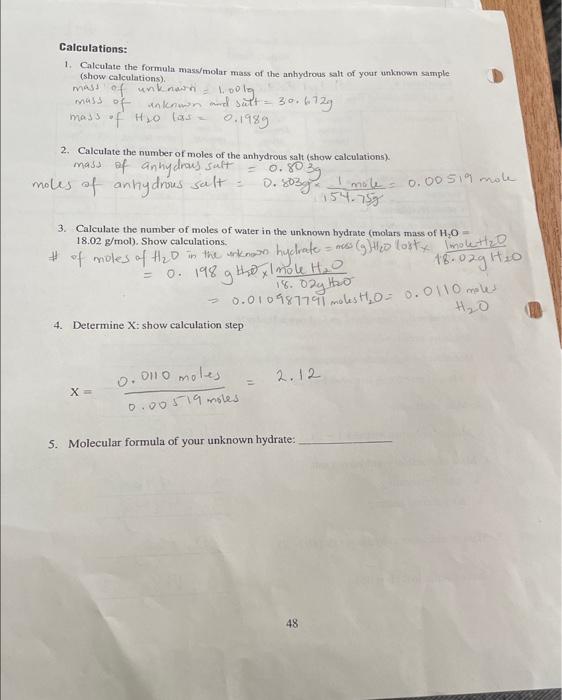 Calculations:
1. Calculate the formula mass/molar mass of the anhydrous salt of your unknown sample
(show calculations).
mass of unknown = 1.001g
mass of unknown and salt = 30.672g
mass of H2O los = 0.198g
2. Calculate the number of moles of the anhydrous salt (show calculations).
mass of anhydrous salt = 0.803g
moles of anhydrous salt = 0.803g × 1 mole / 154.75g = 0.00519 mole
3. Calculate the number of moles of water in the unknown hydrate (molars mass of H2O =
18.02 g/mol). Show calculations.
# of moles of H2O in the unknown hydrate = mass (g) H2O lost × 1mole H2O / 18.02g H2O
= 0.198 g H2O × 1mole H2O / 18.02g H2O
= 0.010987791 moles H2O = 0.0110 moles
H2O
4. Determine X: show calculation step
X = 0.0110 moles / 0.00519 moles = 2.12
5. Molecular formula of your unknown hydrate:
48